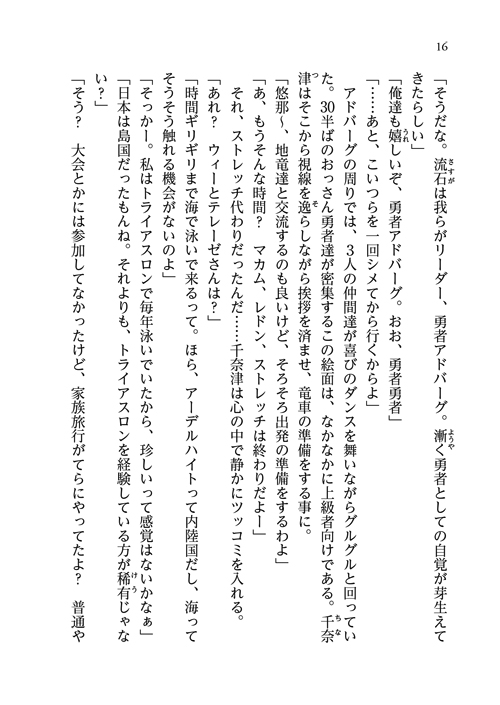 16
「そうだな。流石は我らがリーダー、勇者アドバーグ。漸く勇者としての自覚が芽生えて
きたらしい」
「俺達も嬉しいぞ、勇者アドバーグ。おお、勇者勇者」
「……あと、こいつらを一回シメてから行くからよ」
　アドバーグの周りでは、３人の仲間達が喜びのダンスを舞いながらグルグルと回ってい
た。30半ばのおっさん勇者達が密集するこの絵面は、なかなかに上級者向けである。千奈
津はそこから視線を逸らしながら挨拶を済ませ、竜車の準備をする事に。
「悠那〜、地竜達と交流するのも良いけど、そろそろ出発の準備をするわよ」
「あ、もうそんな時間？　マカム、レドン、ストレッチは終わりだよー」
　それ、ストレッチ代わりだったんだ……千奈津は心の中で静かにツッコミを入れる。
「あれ？　ウィーとテレーゼさんは？」
「時間ギリギリまで海で泳いで来るって。ほら、アーデルハイトって内陸国だし、海って
そうそう触れる機会がないのよ」
「そっかー。私はトライアスロンで毎年泳いでいたから、珍しいって感覚はないかなぁ」
「日本は島国だったもんね。それよりも、トライアスロンを経験している方が稀有じゃな
い？」
「そう？　大会とかには参加してなかったけど、家族旅行がてらにやってたよ？　普通や